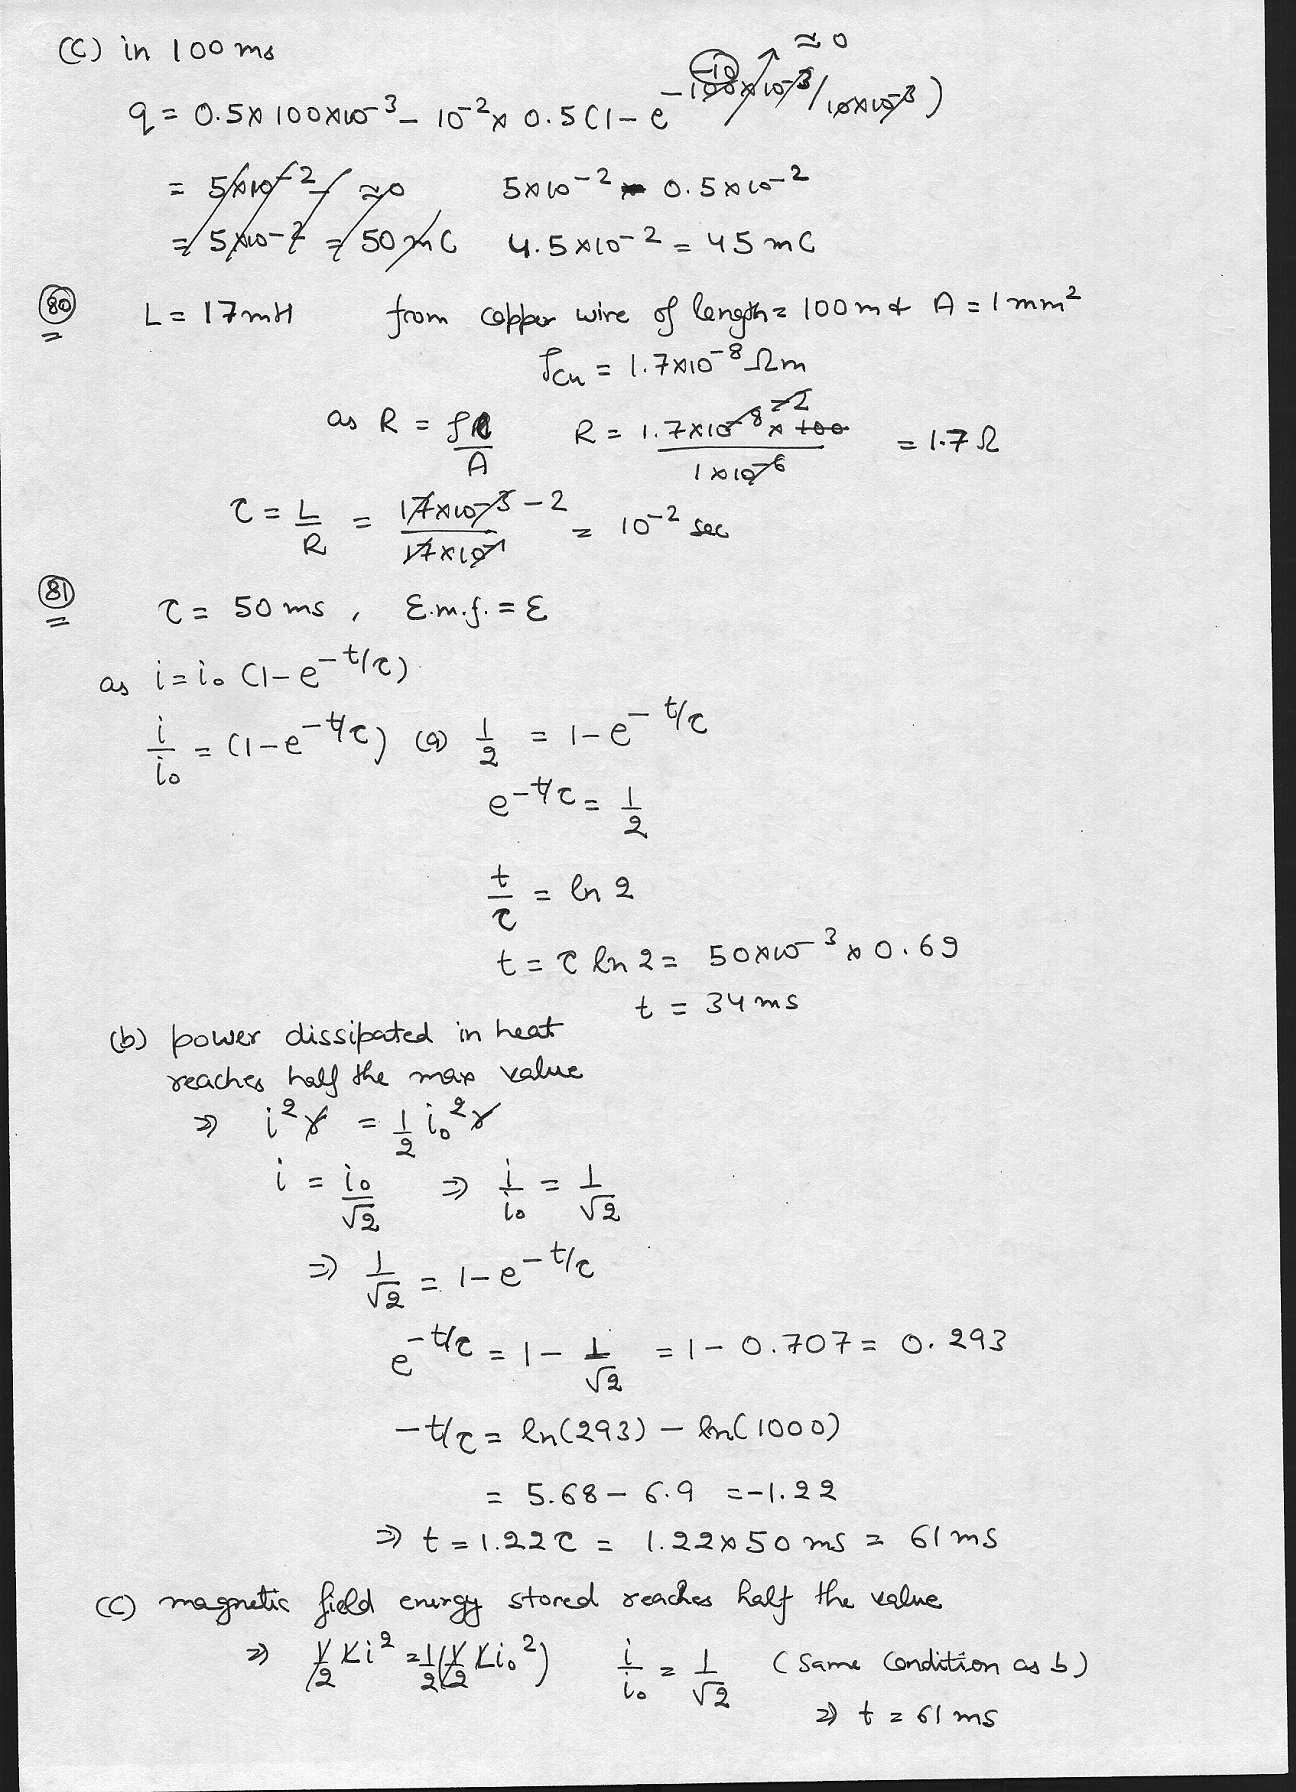 (C) in 100 ms
≈ 0
-10
q = 0.5 × 100 × 10^-3 - 10^-2 × 0.5 (1 - e^-100×10^-3/10×10^-3)
= 5×10^-2 - ≈0 5×10^-2 - 0.5×10^-2
= 5×10^-2 = 50 mC 4.5×10^-2 = 45 mC
80 L = 17mH from copper wire of length = 100 m & A = 1 mm^2
ρCu = 1.7×10^-8 Ωm
as R = ρl/A R = 1.7×10^-8 × 100 / 1×10^-6 = 1.7 Ω
τ = L/R = 17×10^-3 -2 / 17×10^-1 = 10^-2 sec
81 τ = 50 ms, E.m.f. = ε
as i = i₀ (1 - e^-t/τ)
i/i₀ = (1 - e^-t/τ) (a) 1/2 = 1 - e^-t/τ
e^-t/τ = 1/2
t/τ = ln 2
t = τ ln 2 = 50×10^-3 × 0.69
t = 34 ms
(b) power dissipated in heat
reaches half the max value
⇒ i^2 r = 1/2 i₀^2 r
i = i₀/√2 ⇒ i/i₀ = 1/√2
⇒ 1/√2 = 1 - e^-t/τ
e^-t/τ = 1 - 1/√2 = 1 - 0.707 = 0.293
-t/τ = ln(293) - ln(1000)
= 5.68 - 6.9 = -1.22
⇒ t = 1.22τ = 1.22 × 50 ms = 61 ms
(C) magnetic field energy stored reaches half the value
⇒ 1/2 Li^2 = 1/2(1/2 Li₀^2) i/i₀ = 1/√2 (Same condition as b)
⇒ t = 61 ms